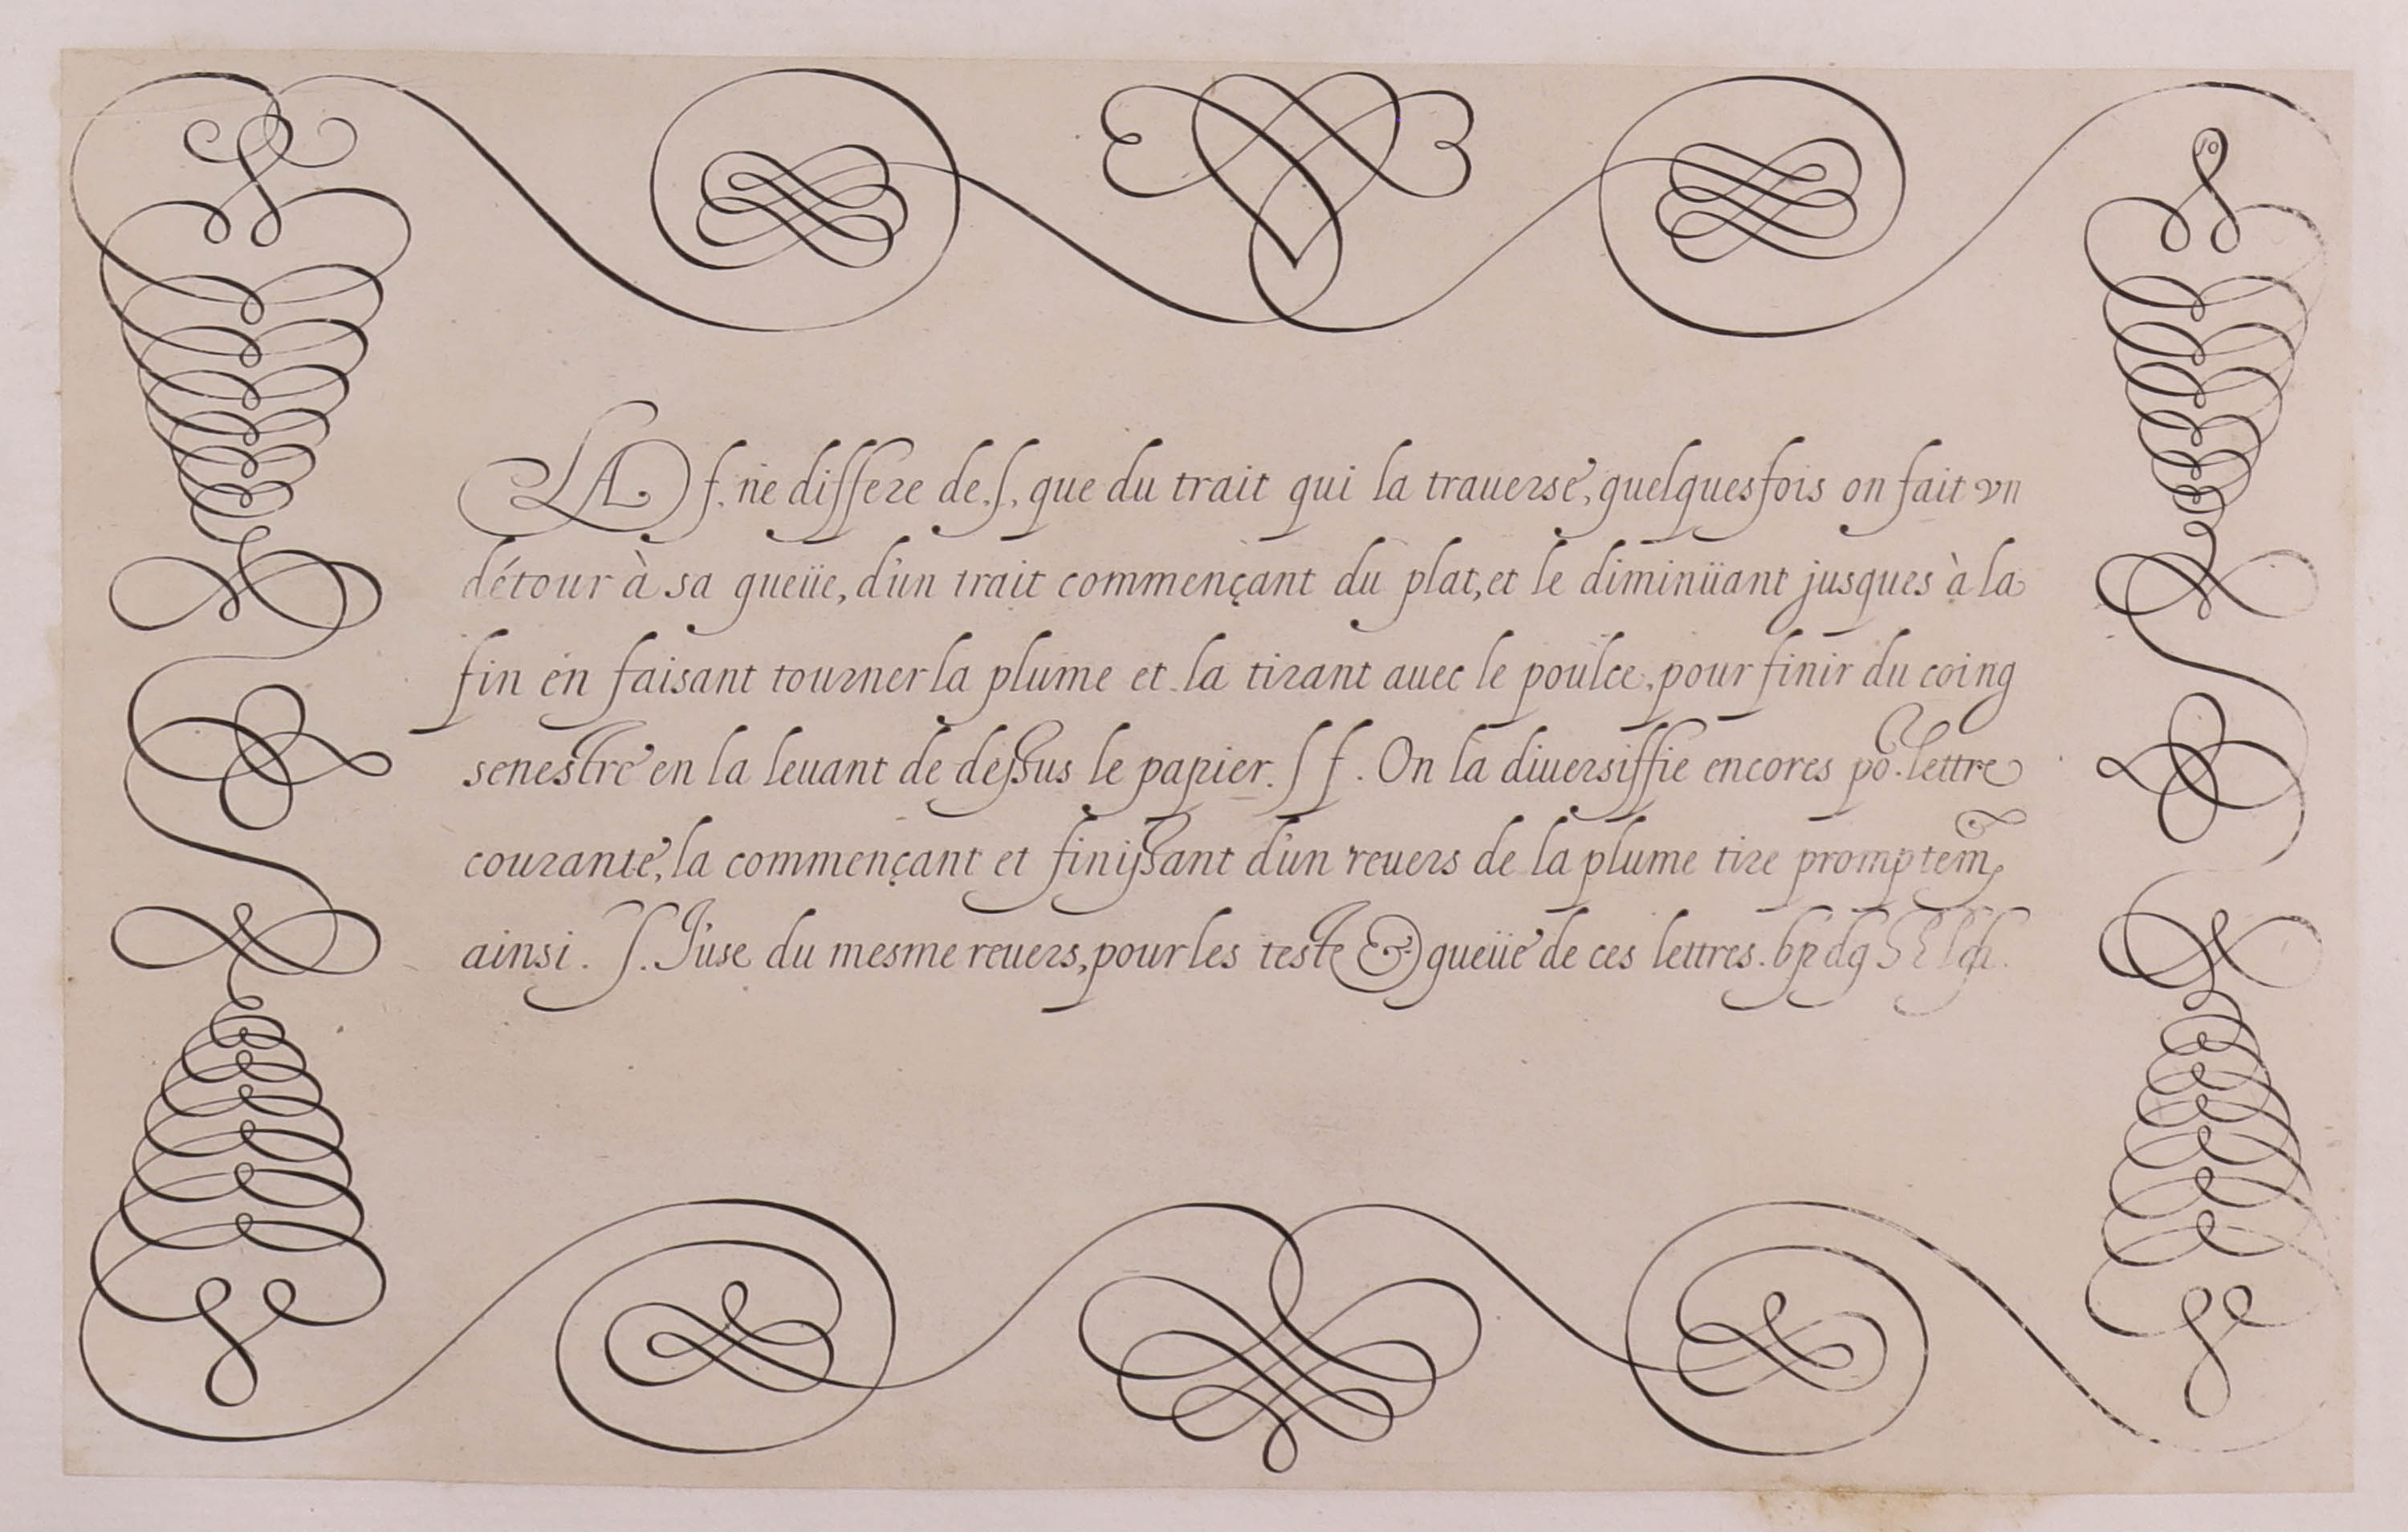 10
LA f. ne differe de .ſ. que du trait qui la trauerse, quelquesfois on fait vn
détour à sa queüe, d'un trait commençant du plat, et le diminüant jusques à la
fin en faisant tourner la plume et la tirant auec le poulce, pour finir du coing
senestre en la leuant de deſsus le papier. ſ f. On la diuersiffie encores po.ʳ lettre
courante, la commençant et finiſsant d'un reuers de la plume tire promptem̃
ainsi. ſ. J'use du mesme reuers, pour les teste & queüe de ces lettres. b p d q